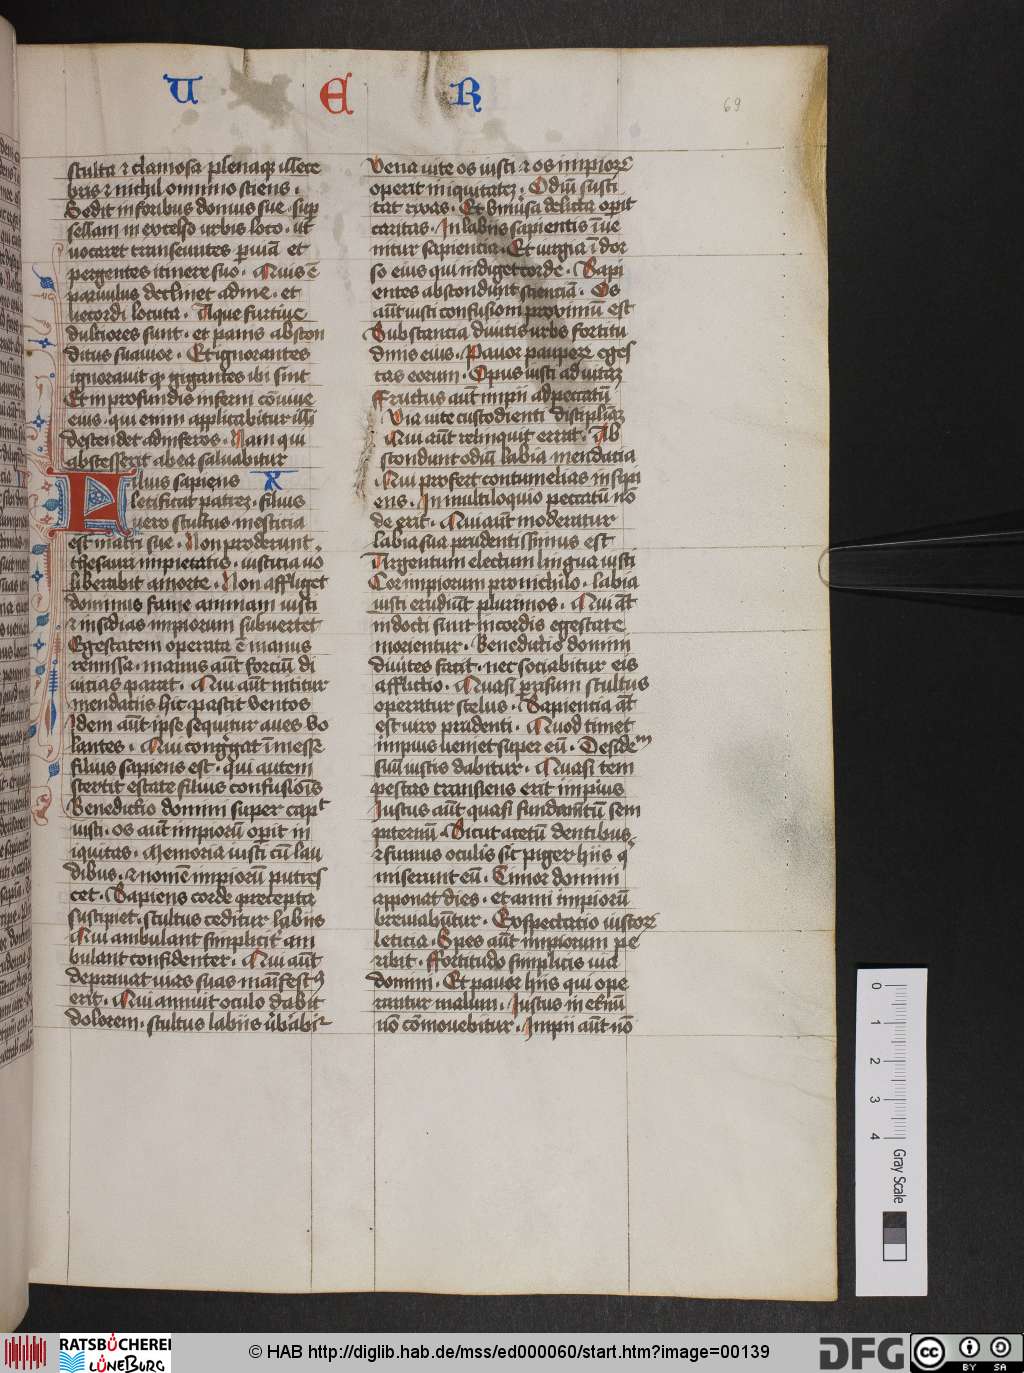 U E R
69
stulta ⁊ clamosa plenaqꝫ illece
bris ⁊ nichil omnino sciens .
Sedit in foribus domus sue . suꝑ
sellam in excelso urbis loco . ut
uocaret transeuntes ꝑ uiā et
pergentes itinere suo . Quis ē
paruulus declinet ad me . et
uecordi locuta . Aque furtiue
dulciores sunt . et panis abscon
ditus suauior . Et ignorantes
ignorauit qꝫ gigantes ibi sint
Et in profundis inferni cōuiue
eius . qui enim applicabitur illi
descendet ad inferos . Nam qui
abscesserit ab ea saluabitur
Filius sapiens X
letificat patrem . filius
uero stultus mesticia
est matri sue . Non proderunt
thesauri impietatis . iusticia uo
liberabit a morte . Non affliget
dominus fame animam iusti
⁊ insidias impiorum subuertet
Egestatem operata ē manus
remissa . manus aūt forciū di
uicias parat . Qui aūt nititur
mendaciis hic pascit uentos
Idem aūt ipse sequitur aues vo
lantes . Qui cong̾gat ī messe
filius sapiens est . qui autem
stertit estate filius confusiōis
Benedictio domini super capt
iusti . os aūt impiorū opit in
iquitas . Memoria iusti cū lau
dibus . ⁊ nomē impiorū putres
cet . Sapiens corde precepta
suscipiet . stultus ceditur labiis
Qui ambulant simplicit am
bulant confidenter . Qui aūt
deprauat uias suas manifestꝰ
erit . Qui annuit oculo dabit
dolorem . stultus labiis ūbabit
Vena uite os iusti ⁊ os impiorꝫ
operit iniquitatez . Odiū susci
tat rixas . Et vniūsa delicta opit
caritas . In labiis sapientis īue
nitur sapiencia . Et uirga ī dor
so eius qui indiget corde . Sapi
entes abscondunt scienciā . Os
aūt iusti confusioni proximū est
Substancia diuitis urbs fortitu
dinis eius . Pauor pauperꝫ eges
tas eorum . Opus iusti ad uitaz
Ffructus aūt impii ad peccatū
Via uite custodienti disciplinaz
Qui aūt relinquit errat . Ab
scondunt odiū labia mendacia
Qui profert contumelias insipi
ens . In multiloquio peccatū nō
de erit . Qui aūt moderatur
labia sua prudentissimus est
Argentum electum lingua iusti
Cor impiorum pro nichilo . labia
iusti erudiūt plurimos . Qui aūt
indocti sunt in cordis egestate
morientur . Benedictio domini
diuites facit . nec sociabitur eis
afflictio . Quasi ꝑ risum stultus
operatur scelus . Sapiencia aūt
est uiro prudenti . Quod timet
impius ueniet super eū . Desideᵐ
suū iustis dabitur . Quasi tem
pestas transiens erit impius
Iustus aūt quasi fundamtū sem
piternū . Sicut acetū dentibus
⁊ fumus oculis sic piger hiis q
miserunt eū . Timor domini
apponat dies . et anni impiorū
breuiabūtur . Exspectatio iustorꝫ
leticia . Spes aūt impiorum pe
ribit . Ffortitudo simplicis uia
domini . Et pauor hiis qui ope
rantur malum . Iustus in etnū
nō cōmouebitur . Impii aūt nō
0 1 2 3 4 Gray Scale
RATSBÜCHEREI
LÜNEBURG
© HAB http://diglib.hab.de/mss/ed000060/start.htm?image=00139
DFG
cc BY SA